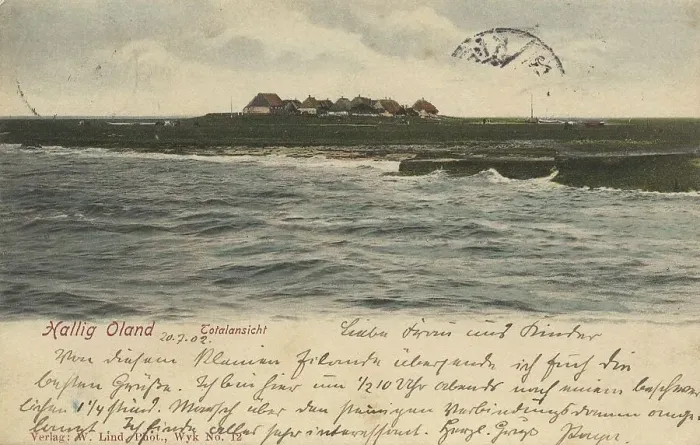 Hallig Oland
20.7.02.
Totalansicht
Liebe Frau und Kinder
Von diesem kleinen Eilande übersende ich Euch die
besten Grüße. Ich bin hier um 1/2 10 Uhr abends nach einem beschwer
lichen 1 1/4 stünd. Marsch über den steinigen Verbindungsdamm ange
langt. Ich finde alles sehr interessant. Herzl. Gruß Papa
Verlag: W. Lind, Phot., Wyk No. 12